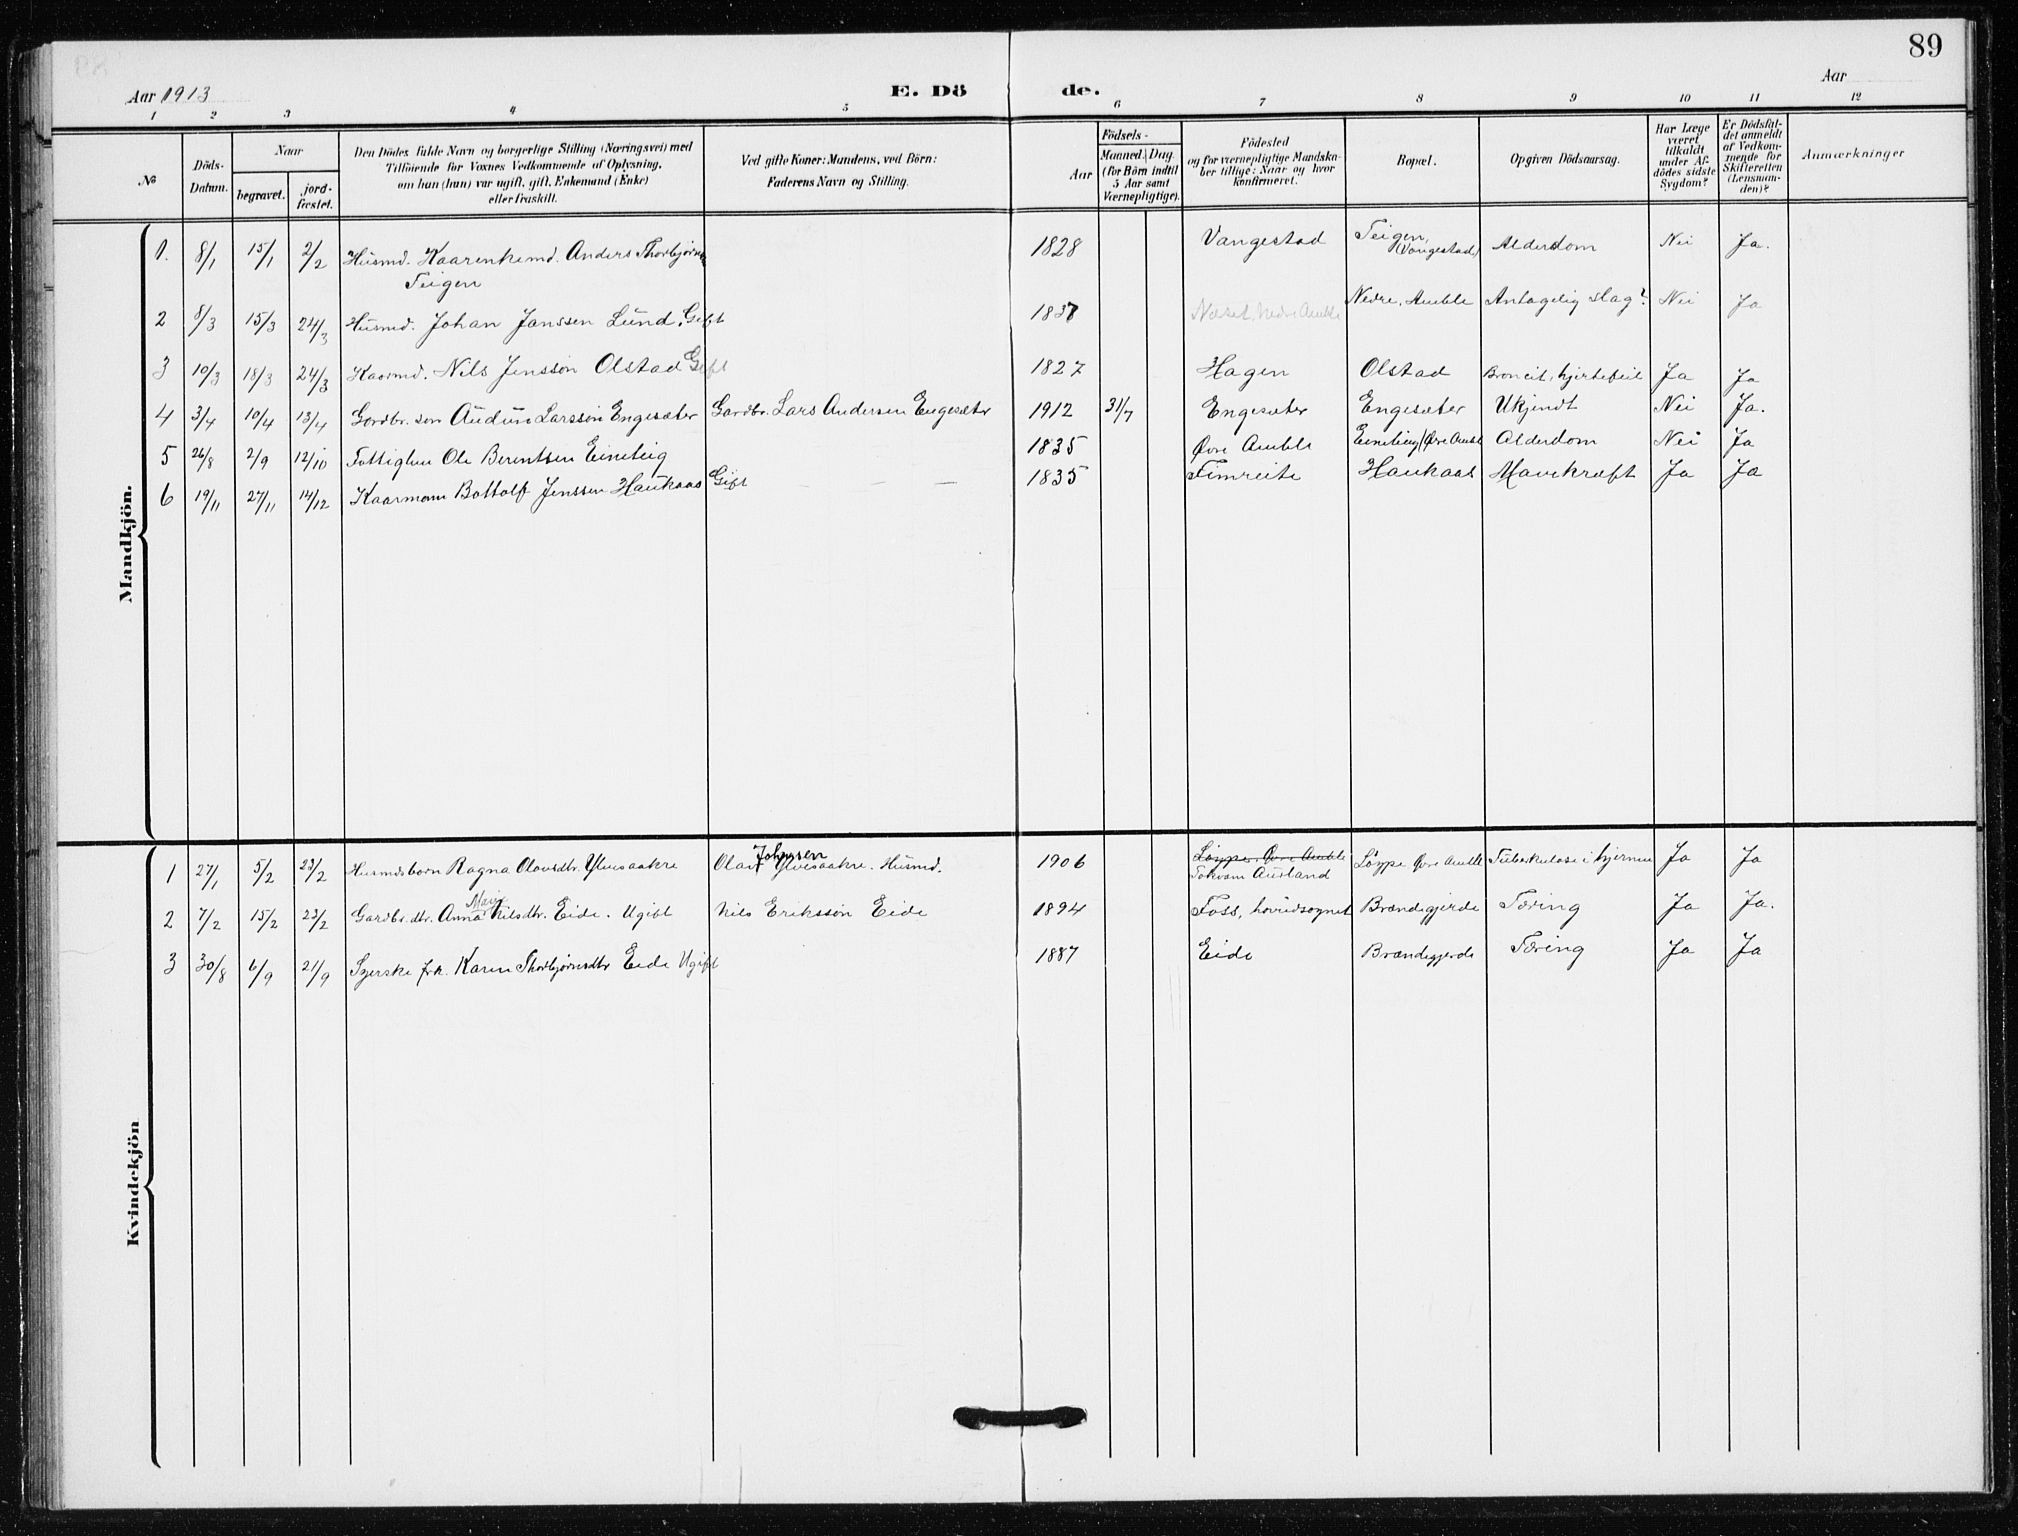 89
Aar 1913 E. Dö de. Aar
1 2 3 4 5 6 7 8 9 10 11 12
№
Döds-Datum.
Naar
begravet. jord-fæstet.
Den Dödes fulde Navn og borgerlige Stilling (Næringsvei) med
Tilföiende for Voxnes Vedkommende af Oplysning,
om han (hun) var ugift, gift, Enkemand (Enke)
eller fraskilt.
Ved gifte Koner: Mandens, ved Börn:
Faderens Navn og Stilling.
Födsels-
Aar Maaned. Dag.
(for Börn indtil
5 Aar samt
Værnepligtige).
Födested
og for værnepligtige Mandska-
ber tillige: Naar og hvor
konfirmeret.
Bopæl.
Opgiven Dödsaarsag.
Har Læge
været
tilkaldt
under Af-
dödes sidste
Sygdom?
Er Dödsfal-
det anmeldt
af Vedkom-
mende for
Skifteretten
(Lensman-
den)?
Anmærkninger
Mandkjön.
1. 8/1 15/1 2/2 Husmd. Kaarenkemd. Anders Thorbjørns. Teigen 1828 Vangestad Teigen (Vangestad) Alderdom Nei Ja.
2 8/3 15/3 24/3 Husmd. Johan Janssen Lund, Gift 1837 Næset, Nedre Amble Nedre Amble Antagelig slag? Nei Ja
3 10/3 18/3 24/3 Kaarmd. Nils Jensson Olstad Gift 1827 Hagen Olstad Broncit, hjertefeil Ja Ja
4 3/4 10/4 13/4 Gardbr. søn Audun Larssøn Engesæter Gardbr. Lars Andersen Engesæter 1912 31/7 Engesæter Engesæter Ukjendt Nei Ja.
5 26/8 2/9 12/10 Fattiglem Ole Berentsen Eineteig 1835 Øvre Amble Eineteig/Øvre Amble Alderdom Nei Ja
6 19/11 27/11 14/12 Kaarmann Bottolf Jenssen Haukaas Gift — — — 1835 Fimreite Haukaas Mavekræft Ja Ja
Kvindekjön
1 27/1 5/2 23/2 Husmdsbarn Ragna Olavsdtr. Ylvisaakre Olav Johnsen Ylvisaakre. Husmd. 1906 Løype, Øvre Amble Tokvam Aurland Løype Øvre Amble Tuberkulose i hjernen Ja Ja
2 7/2 15/2 23/2 Gardbr. dtr. Anna Marie Nilsdtr. Eide. Ugift Nils Eriksson Eide 1894 Foss, hovedsognet Brændegjerde Tæring Ja Ja.
3 30/8 6/9 21/9 frk. Karen Thorbjørnsdtr Eide Ugift 1887 Eide Brændegjerde Tæring Ja Ja